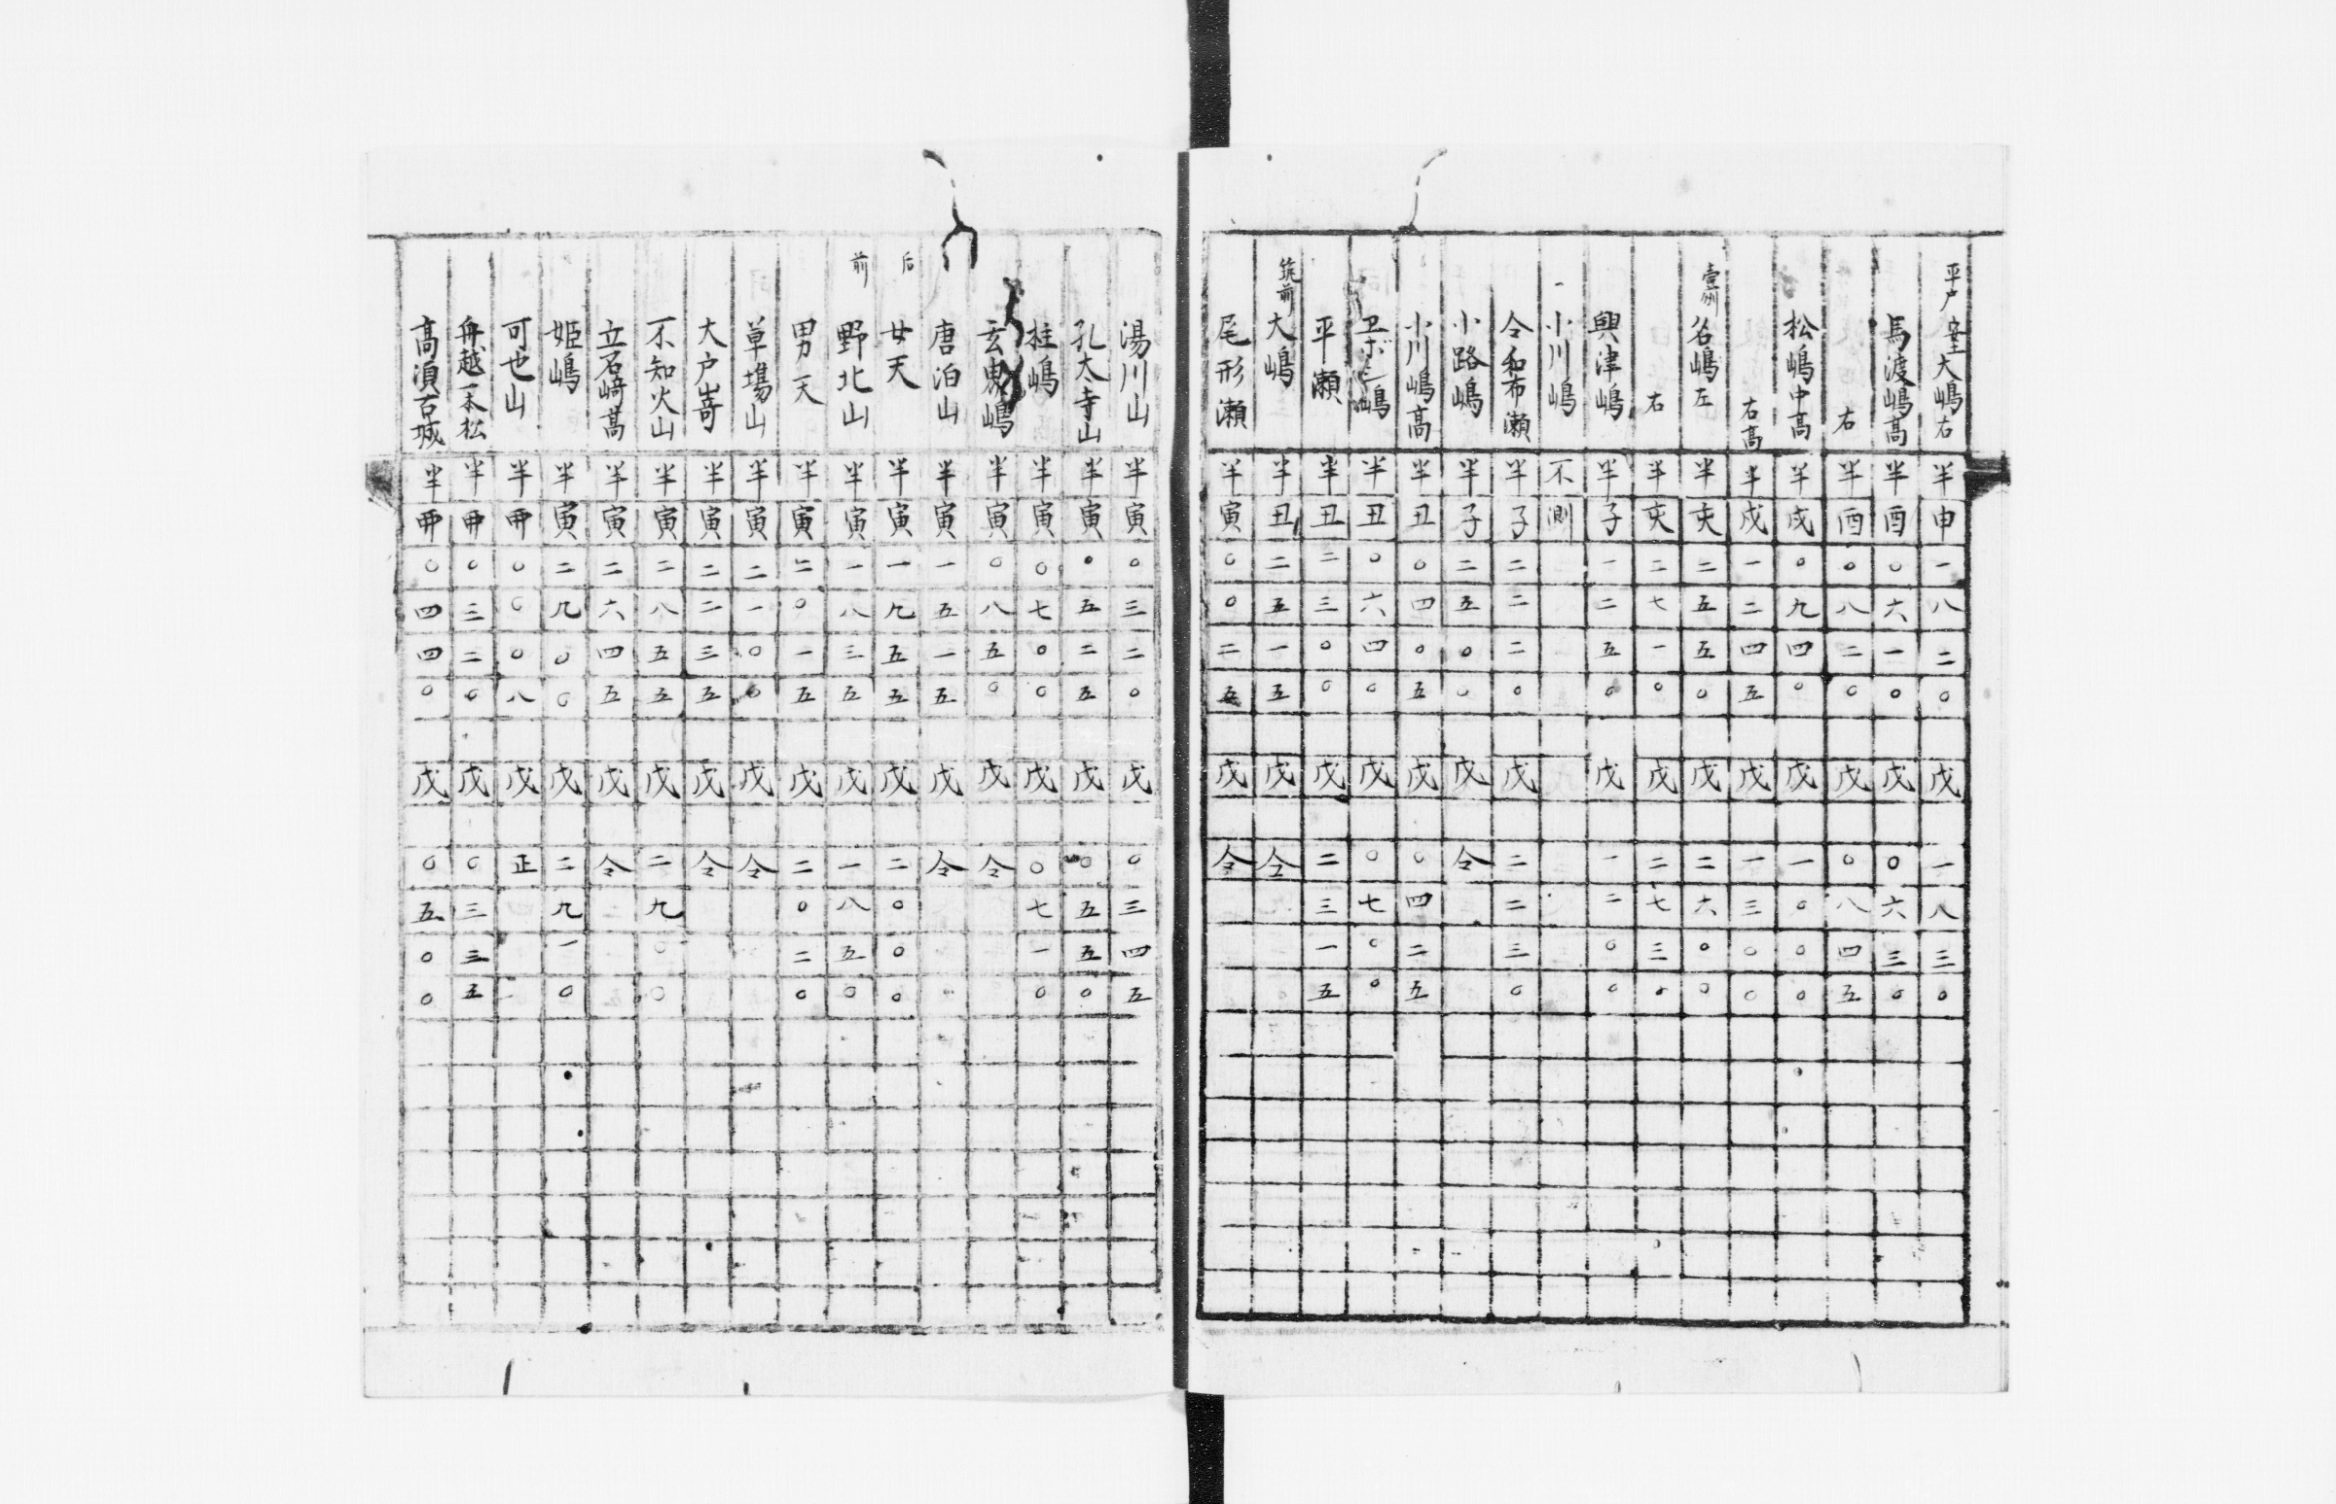 平戸 安土 大嶋右 半申一八二〇 戊 一八三〇
馬渡嶋高 半酉〇六一〇 戊 〇六三〇
右 半酉〇八二〇 戊 〇八四五
松嶋中高 半戌〇九四〇 戊 一〇〇〇
右高 半戌一二四五 戊 一三〇〇
壹州 名嶋左 半亥二五五〇 戊 二六〇〇
右 半亥二七一〇 戊 二七三〇
興津嶋 半子一二五〇 戊 一二〇〇
小川嶋 不測
令和布瀬 半子二二二〇 戊 二二三〇
小路嶋 半子二五〇〇 戊 令
小川嶋高 半丑〇四〇五 戊 〇四二五
嶋 半丑〇六四〇 戊 〇七〇〇
平瀬 半丑二三〇〇 戊 二三一五
筑前 大嶋 半丑二五一五 戊 令
尾形瀬 半寅〇〇二五 戊 令
湯川山 半寅〇三二〇 戊 〇三四五
孔大寺山 半寅〇五二五 戊 〇五五〇
桂嶋 半寅〇七〇〇 戊 〇七一〇
玄嶋 半寅〇八五〇 戊 令
唐泊山 半寅一五一五 戊 令
后 女天 半寅一九五五 戊 二〇〇〇
前 野北山 半寅一八三五 戊 一八五〇
男天 半寅二〇一五 戊 二〇二〇
草場山 半寅二一〇〇 戊 令
大戸嵜 半寅二二三五 戊 令
不知火山 半寅二八五五 戊 二九〇〇
立石﨑髙 半寅二六四五 戊 令
姫嶋 半寅二九〇〇 戊 二九一〇
可也山 半丣〇〇〇八 戊 正
舟越一本松 半丣〇三二〇 戊 〇三三五
高湏古城 半丣〇四四〇 戊 〇五〇〇